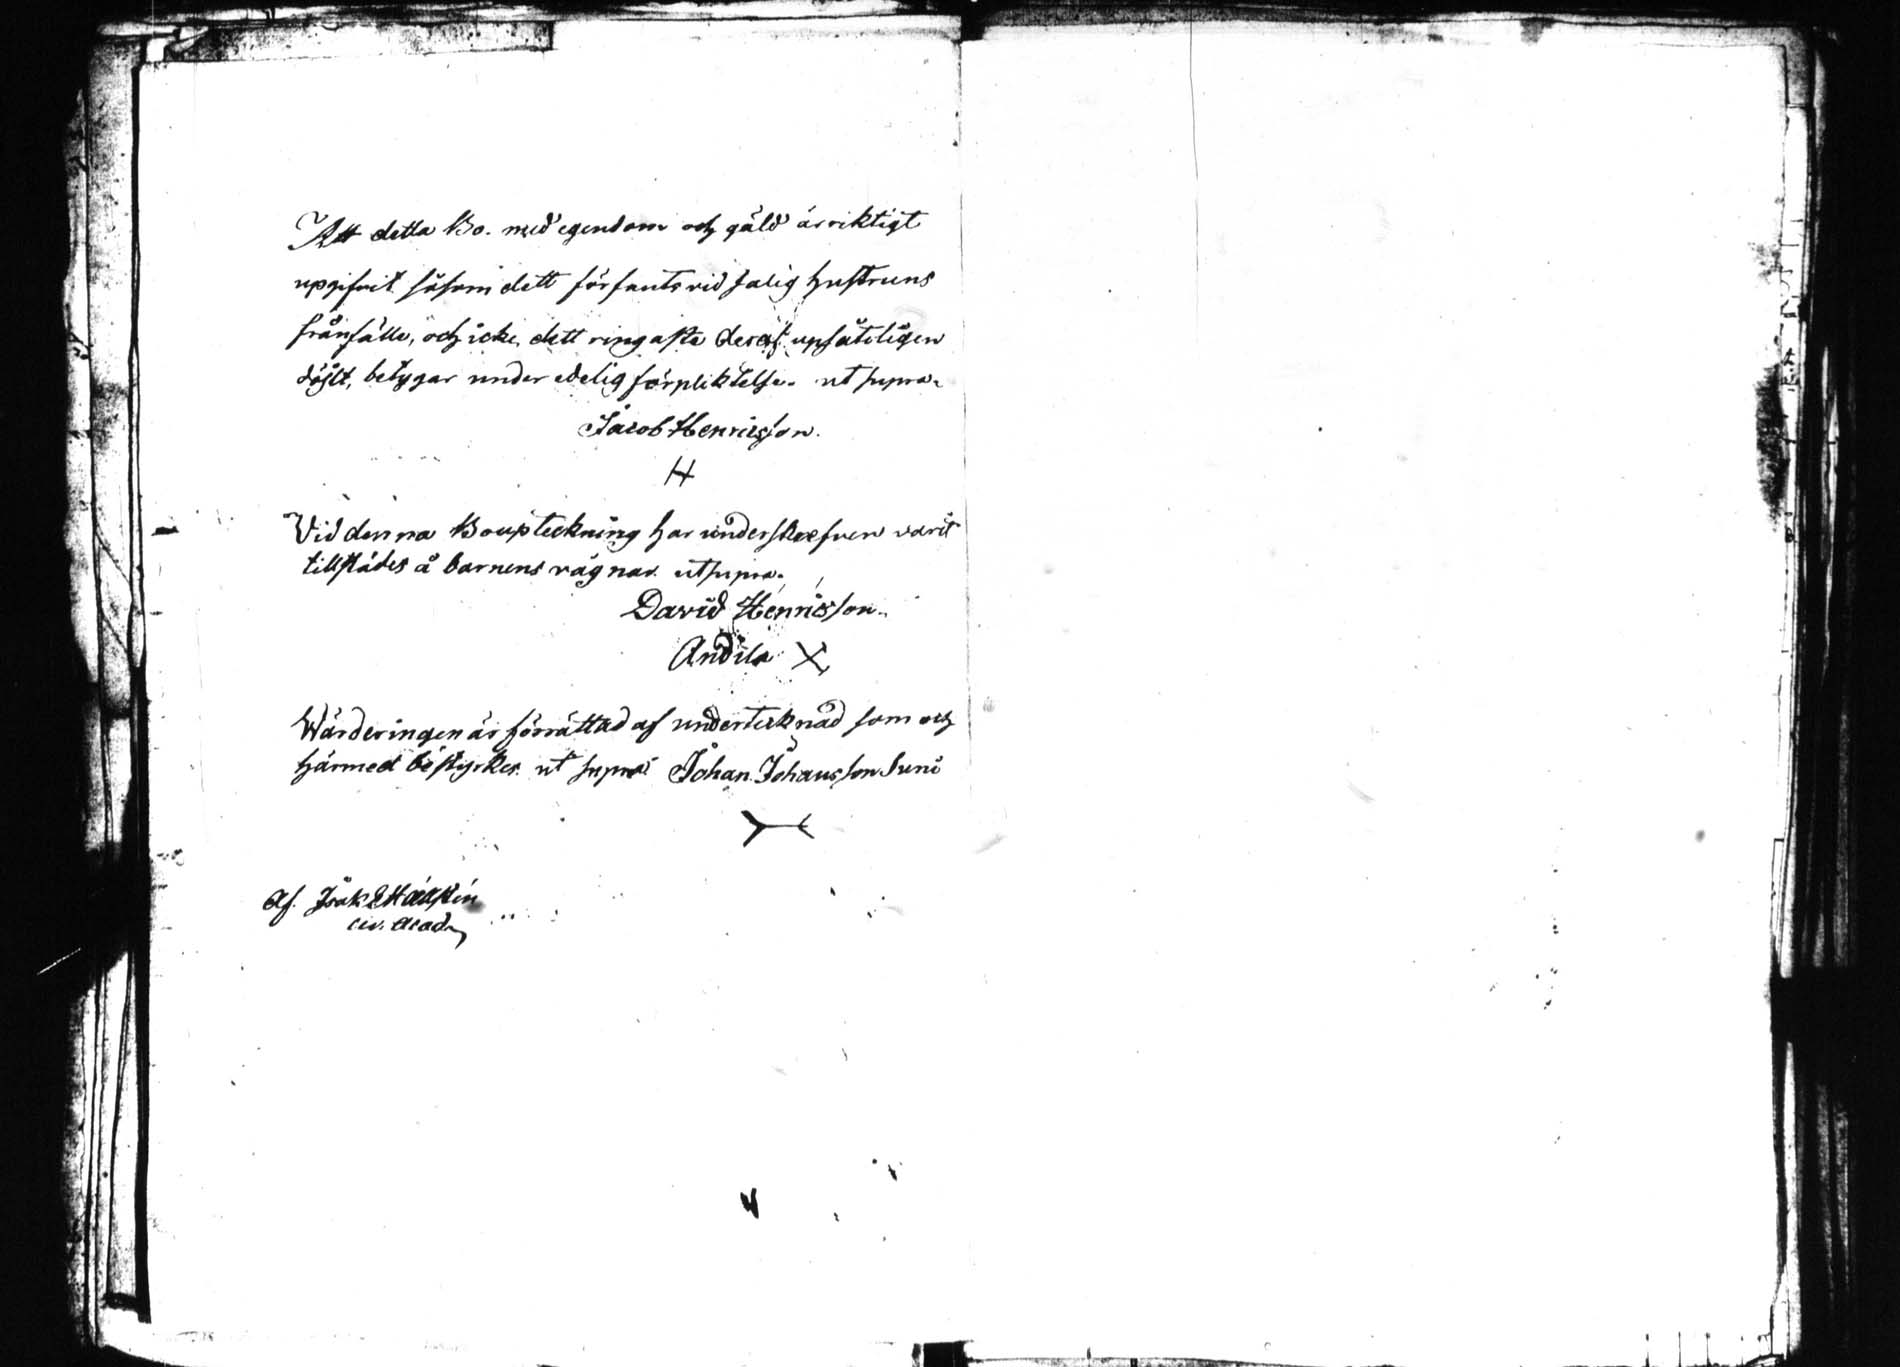 Att detta Bo. med egendom och gäld är riktigt
upgifvit såsom dett förfants vid salig hustruns
frånfälle, och icke dett ringaste deraf upsåteligen
döljt, betygar under edelig förpliktelse. ut supra.
Jacob Henricsson.
H
Vid denna Bouptekning har underskrefven varit
tillstädes å barnens vägnar. ut supra.
David Henrisson.
Andila X
Wärderingen är förrättad af undertecknad som och
härmed bestyrkes. ut supra Johan Johansson Suni
Af. Isak
civ. Acad.